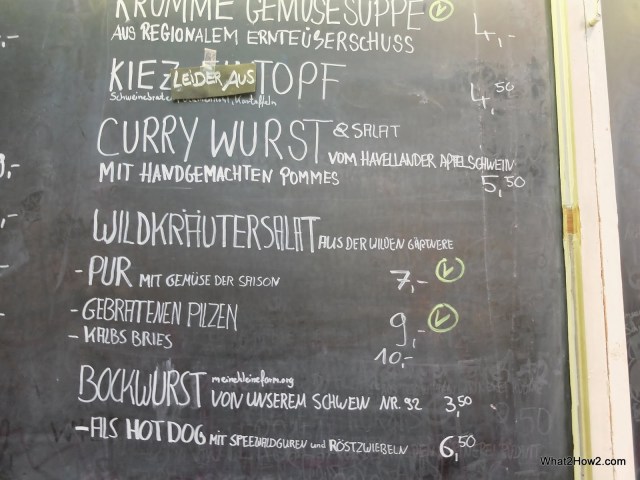 KRUMME GEMÜSESUPPE
AUS REGIONALEM ERNTEÜBERSCHUSS 4,-
KIEZ LEIDER AUS TOPF
4,50
CURRYWURST & SALAT
VOM HAVELLANDER APFELSCHWEIN
MIT HANDGEMACHTEN POMMES 5,50
WILDKRÄUTERSALAT AUS DER WILDEN GÄRTNEREI
- PUR MIT GEMÜSE DER SAISON 7,-
- GEBRATENEN PILZEN 9,-
- KALBS BRIES 10,-
BOCKWURST meinekleinefarm.org
VON UNSEREM SCHWEIN NR. 92 3,50
- ALS HOTDOG MIT SPREEWALDGURKEN und RÖSTZWIEBELN 6,50
What2How2.com